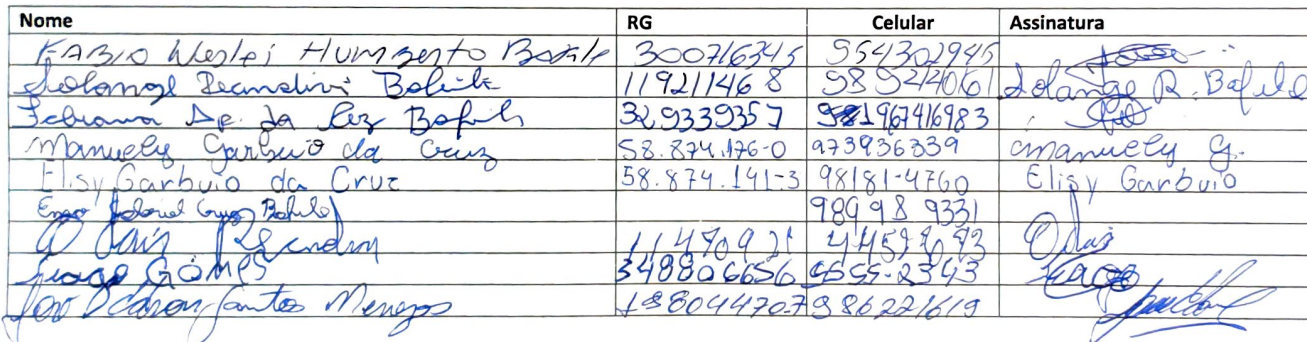 Nome RG Celular Assinatura
FABIO Weslei Humberto Bafile 300716345 954302945
Solange Recandivi Bafile 119211468 989244061 Solange R. Bafile
Febiana Ap. da Cruz Bafile 329339357 981967416983
Manuely Garbuio da Cruz 58.874.176-0 973936339 Manuely G.
Elisy Garbuio da Cruz 58.874.141-3 98181-4760 Elisy Garbuio
Enzo Gabriel Cruz Bafile 98998 9331
Odair 11470921 Odair
Tiago GOMES 348806656 9555-2343 Tiago
José Santos Menezes 198044707 986221619